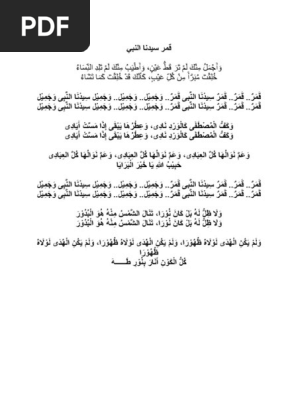 PDF
قمر سيدنا النبي
وَأَجْمَلُ مِنْكَ لَمْ تَرَ قَطُّ عَيْنِ، وَأَطْيَبُ مِنْكَ لَمْ تَلِدِ النِّسَاءُ
خُلِقْتَ مُبَرَّأً مِنْ كُلِّ عَيْبٍ، كَأَنَّكَ قَدْ خُلِقْتَ كَمَا تَشَاءُ
قَمَرٌ.. قَمَرٌ.. قَمَرٌ سِيدْنَا النَّبِي قَمَرٌ.. وَجَمِيل.. وَجَمِيل.. وَجَمِيل سِيدْنَا النَّبِي وَجَمِيل
قَمَرٌ.. قَمَرٌ.. قَمَرٌ سِيدْنَا النَّبِي قَمَرٌ.. وَجَمِيل.. وَجَمِيل.. وَجَمِيل سِيدْنَا النَّبِي وَجَمِيل
وَكَفُّ الْمُصْطَفَى كَالْوَرْدِ نَادِى، وَعِطْرُهَا يَبْقَى إِذَا مَسَّتْ أَيَادِى
وَكَفُّ الْمُصْطَفَى كَالْوَرْدِ نَادِى، وَعِطْرُهَا يَبْقَى إِذَا مَسَّتْ أَيَادِى
وَعَمَّ نَوَالُهَا كُلَّ الْعِبَادِى، وَعَمَّ نَوَالُهَا كُلَّ الْعِبَادِى، وَعَمَّ نَوَالُهَا كُلَّ الْعِبَادِى
حَبِيبُ اللهِ يَا خَيْرَ الْبَرَايَا
قَمَرٌ.. قَمَرٌ.. قَمَرٌ سِيدْنَا النَّبِي قَمَرٌ.. وَجَمِيل.. وَجَمِيل.. وَجَمِيل سِيدْنَا النَّبِي وَجَمِيل
قَمَرٌ.. قَمَرٌ.. قَمَرٌ سِيدْنَا النَّبِي قَمَرٌ.. وَجَمِيل.. وَجَمِيل.. وَجَمِيل سِيدْنَا النَّبِي وَجَمِيل
وَلَا ظِلٌّ لَهُ بَلْ كَانَ نُورًا، تَنَالَ الشَّمْسُ مِنْهُ هُوَ الْبُدُوْرَ
وَلَا ظِلٌّ لَهُ بَلْ كَانَ نُورًا، تَنَالَ الشَّمْسُ مِنْهُ هُوَ الْبُدُوْرَ
وَلَمْ يَكُنِ الْهُدَى لَوْلَاهُ ظُهُوْرَا، وَلَمْ يَكُنِ الْهُدَى لَوْلَاهُ ظُهُوْرَا، وَلَمْ يَكُنِ الْهُدَى لَوْلَاهُ
ظُهُوْرَا
كُلُّ الْكَوْنِ أَنَارَ بِنُوْرِ طٰـــــهَ